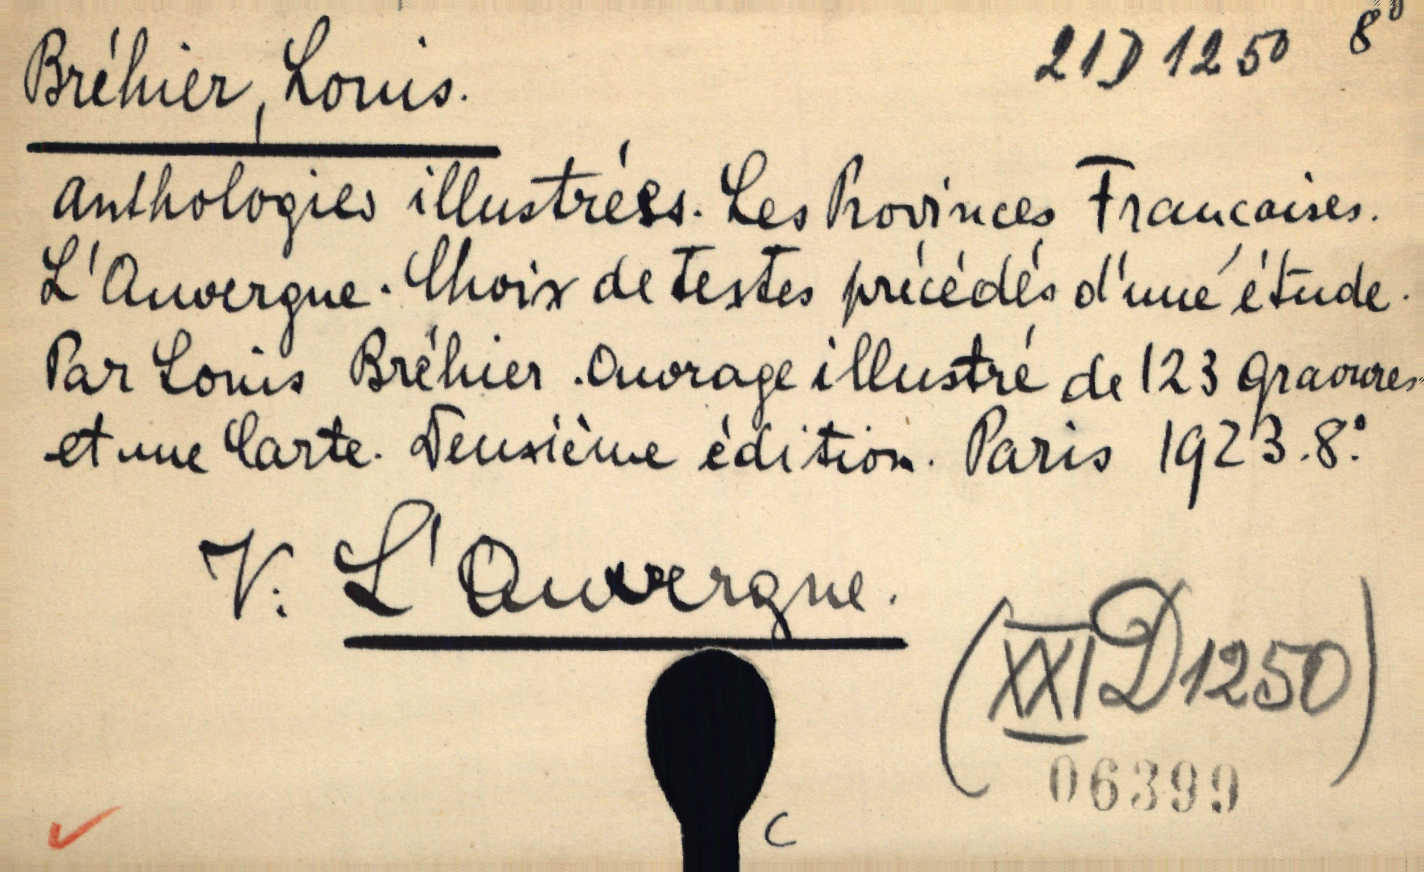 Bréhier, Louis.
21D 1250 8°
Anthologies illustrées. Les Provinces Françaises.
L'Auvergne. Choix de textes précédés d'une étude.
Par Louis Bréhier. Ouvrage illustré de 123 gravures
et une Carte. Deuxième édition. Paris 1923.8°.
V: L'Auvergne.
(XXI D 1250)
06399
C